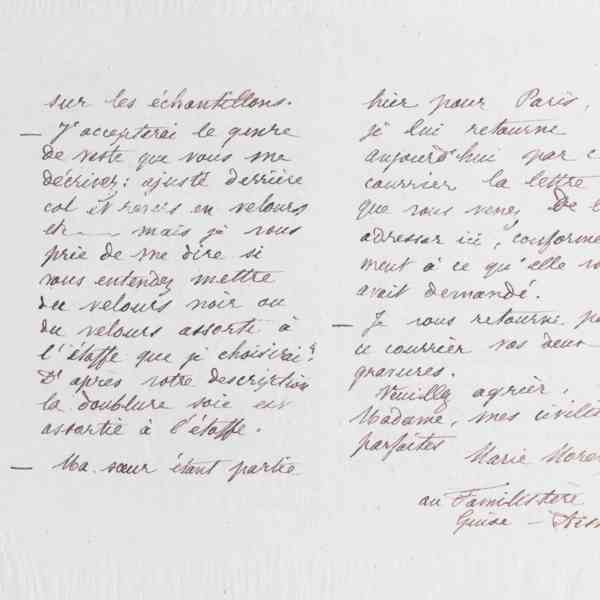 sur les échantillons.
— J'accepterai le genre
de veste que vous me
décrivez : ajusté derrière
col et revers en velours
etc mais je vous
prie de me dire si
vous entendez mettre
du velours noir ou
du velours assorti à
l'étoffe que je choisirai ?
D'après votre description
la doublure soie est
assortie à l'étoffe.
— Ma sœur étant partie
hier pour Paris,
je lui retourne
aujourd'hui par c
courrier la lettre
que vous venez de l
adresser ici, conformé
ment à ce qu'elle v
avait demandé.
— Je vous retourne p
ce courrier vos deux
gravures.
Veuillez agréer,
Madame, mes civili
parfaites
Marie More
au Familistère
Guise – Ais